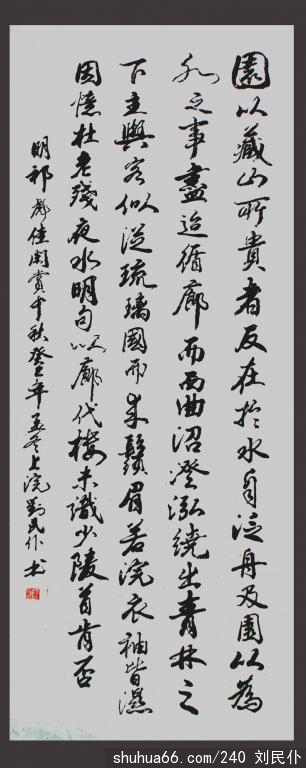 園以藏山所貴者反在於水自泛舟及園以為
水之事盡迨循廊而西曲沼澄泓繞出青林之
下主與客似從琉璃國而来鬚眉若浣衣袖皆濕
因憶杜老殘夜水明句以廊代樓未識少陵首肯否
明祁彪佳閑賞千秋癸巳年孟冬上浣劉民仆書
shuhua66.com/240 刘民仆